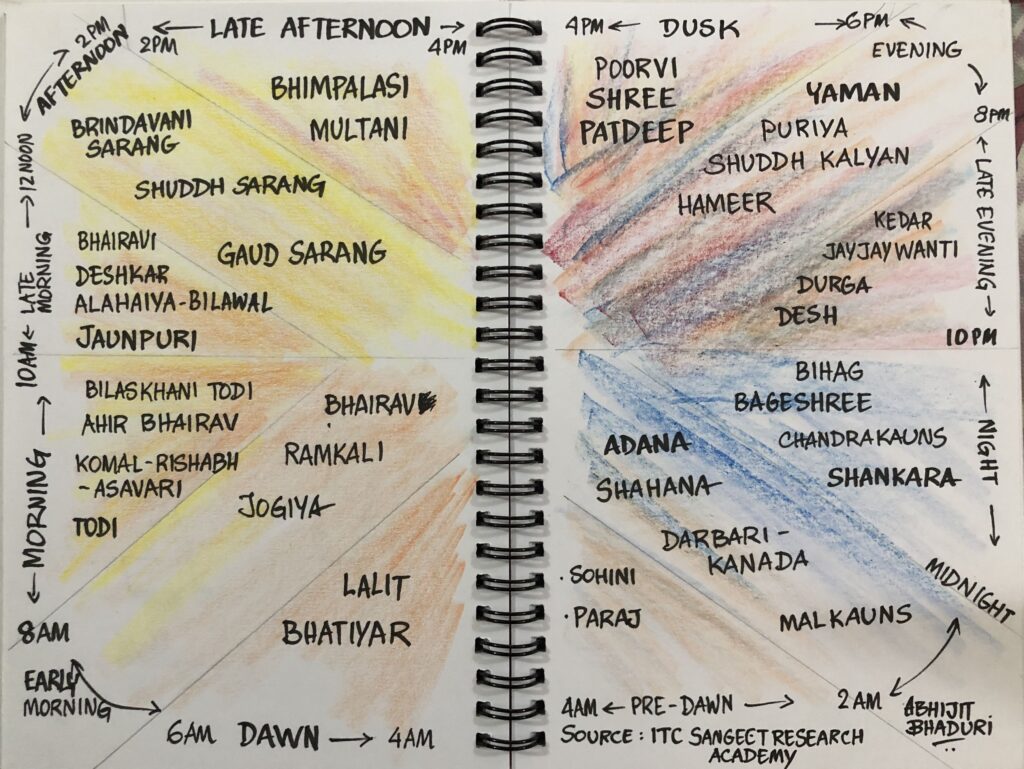 2PM
AFTERNOON
2PM ← LATE AFTERNOON → 4PM
BHIMPALASI
MULTANI
BRINDAVANI
SARANG
SHUDDH SARANG
GAUD SARANG
10AM ← LATE MORNING → 12NOON
BHAIRAVI
DESHKAR
ALAHAIYA-BILAWAL
JAUNPURI
← MORNING →
BILASKHANI TODI
AHIR BHAIRAV
KOMAL-RISHABH
-ASAVARI
TODI
BHAIRAV
RAMKALI
JOGIYA
LALIT
BHATIYAR
8AM
EARLY
MORNING
6AM DAWN → 4AM
4PM ← DUSK → 6PM
EVENING
8PM
POORVI
SHREE
PATDEEP
YAMAN
PURIYA
SHUDDH KALYAN
HAMEER
← LATE EVENING →
KEDAR
JAYJAYWANTI
DURGA
DESH
10PM
BIHAG
BAGESHREE
CHANDRAKAUNS
SHANKARA
← NIGHT →
MIDNIGHT
ADANA
SHAHANA
DARBARI-
KANADA
MALKAUNS
· SOHINI
· PARAJ
4AM ← PRE-DAWN → 2AM
SOURCE : ITC SANGEET RESEARCH
ACADEMY
ABHIJIT
BHADURI